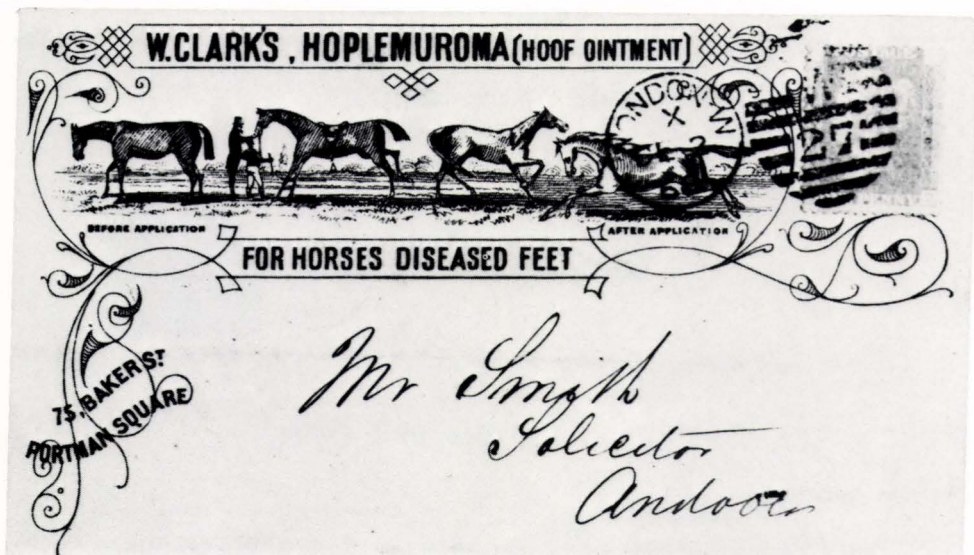 W.CLARK'S, HOPLEMUROMA (HOOF OINTMENT)
LONDON·W
X
2
27
BEFORE APPLICATION
AFTER APPLICATION
FOR HORSES DISEASED FEET
75, BAKER ST
PORTMAN SQUARE
Mr Smith
Solicitor
Andover